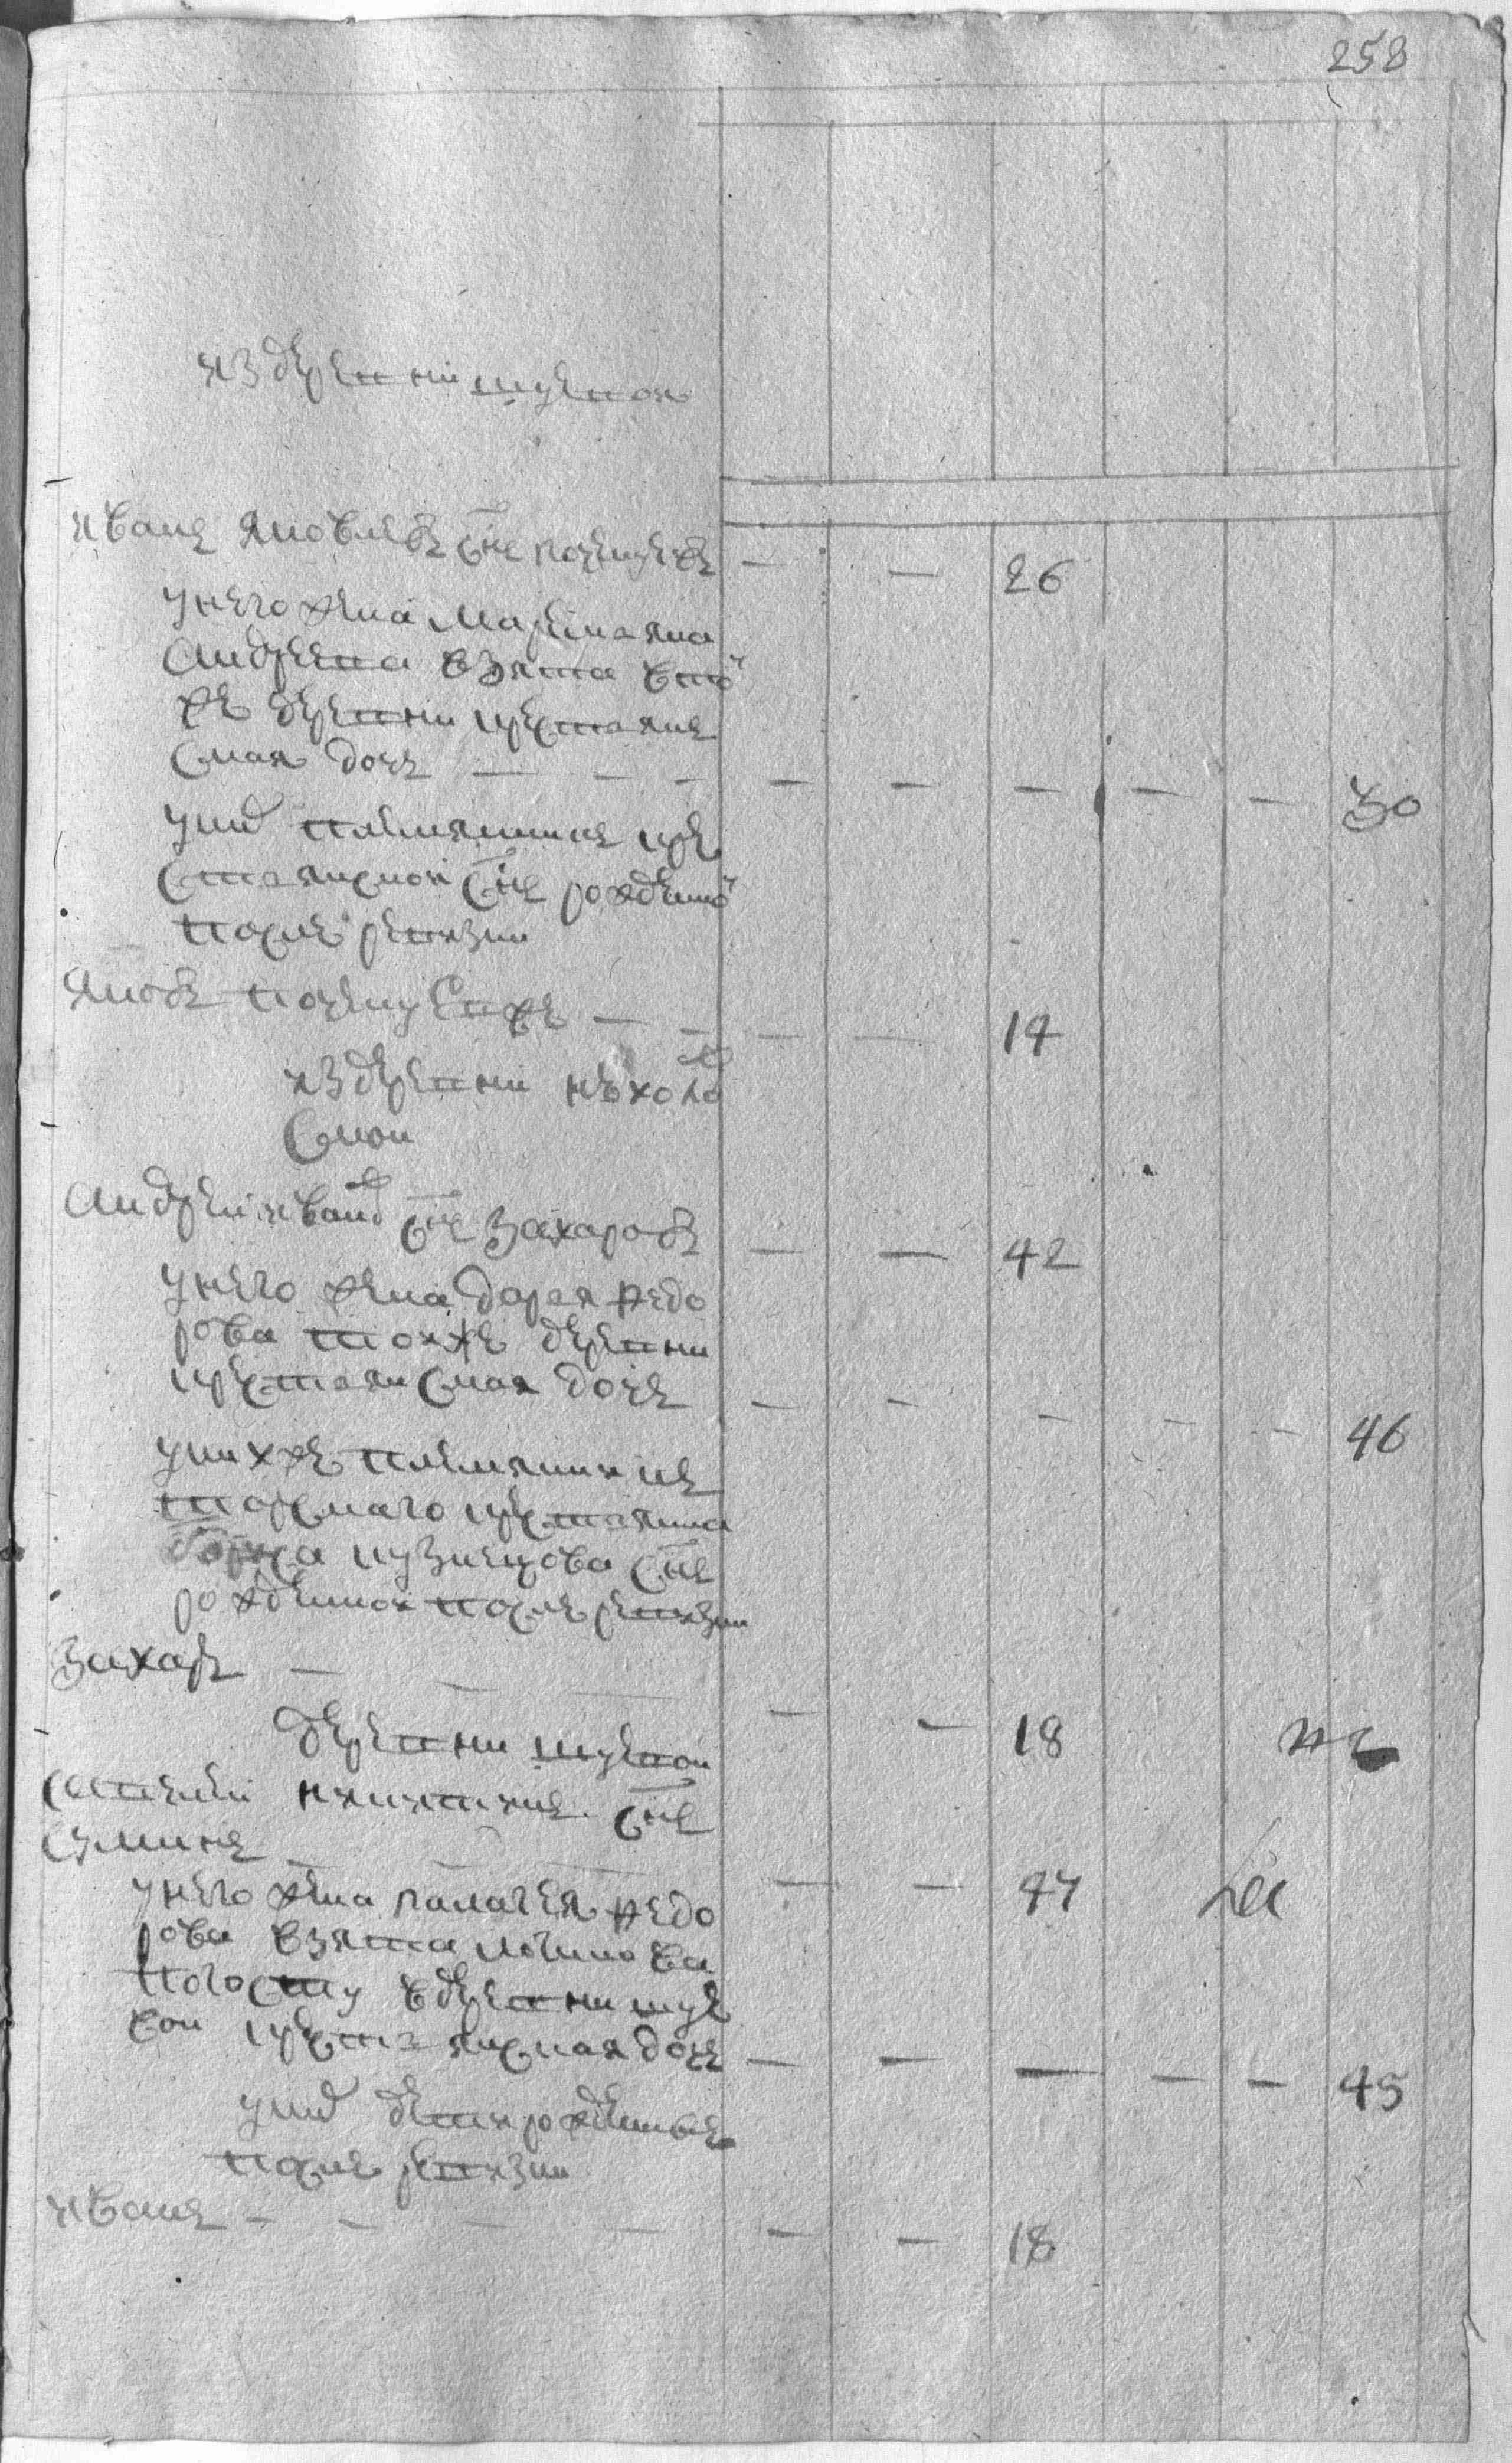 258
из деревни шуевой
иванъ яковлевъ сн̃ъ почекуевъ — — 26
у него жена маремьяна
андреева взята в той
же деревни крестьянъ
ская дочь — — — — — — — — 30
у них племянникъ кре
стьянской сн̃ъ рожденной
после ревизии
яковъ почекуевъ же — — — — 14
из деревни нехолов
ской
андрей иванов сн̃ъ захаровъ — — 42
у него жена дарья федо
рова той же деревни
крестьянская дочь — — — — — 46
у них же племянникъ
тарскаго крестьянина
бориса кузнецова сн̃ъ
рожденной после ревизии
захаръ — — — — 18
деревни шуевой
савелей никитинъ сн̃ъ
сумин — — — — 47
у него жена палагея федо
рова взята
погосту в деревни шуе
вой крестьянская дочь — — — — — 45
у них дети рожденные
после ревизии
иванъ — — — — — — 18